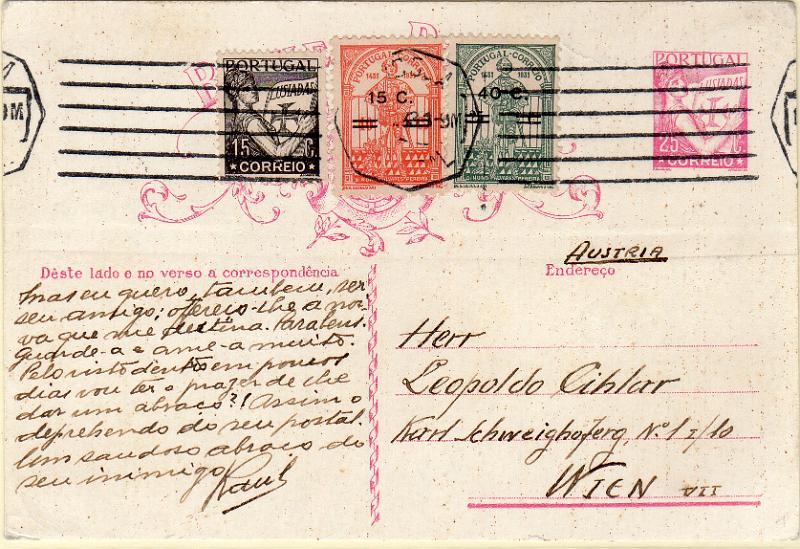 PORTUGAL
LUSIADAS
15 C.
CORREIO
PORTUGAL-CORREIO
1431 1931
15 C.
PORTUGAL-CORREIO
1431 1931
40 C.
PORTUGAL
LUSIADAS
25 C.
CORREIO
Dêste lado e no verso a correspondência
mas eu quero, tambem, ser
seu amigo; ofereço-lhe a noi-
va que me destina. Parabens.
Guarde-a e ame-a muito.
Pelo visto dentro em poucos
dias vou ter o prazer de lhe
dar um abraço?! Assim o
deprehendo do seu postal.
Um saudoso abraço do
seu inimigo
Raul
AUSTRIA
Endereço
Herr
Leopoldo Cihlar
Karl Schweighoferg Nº 1 I/10
WIEN VII